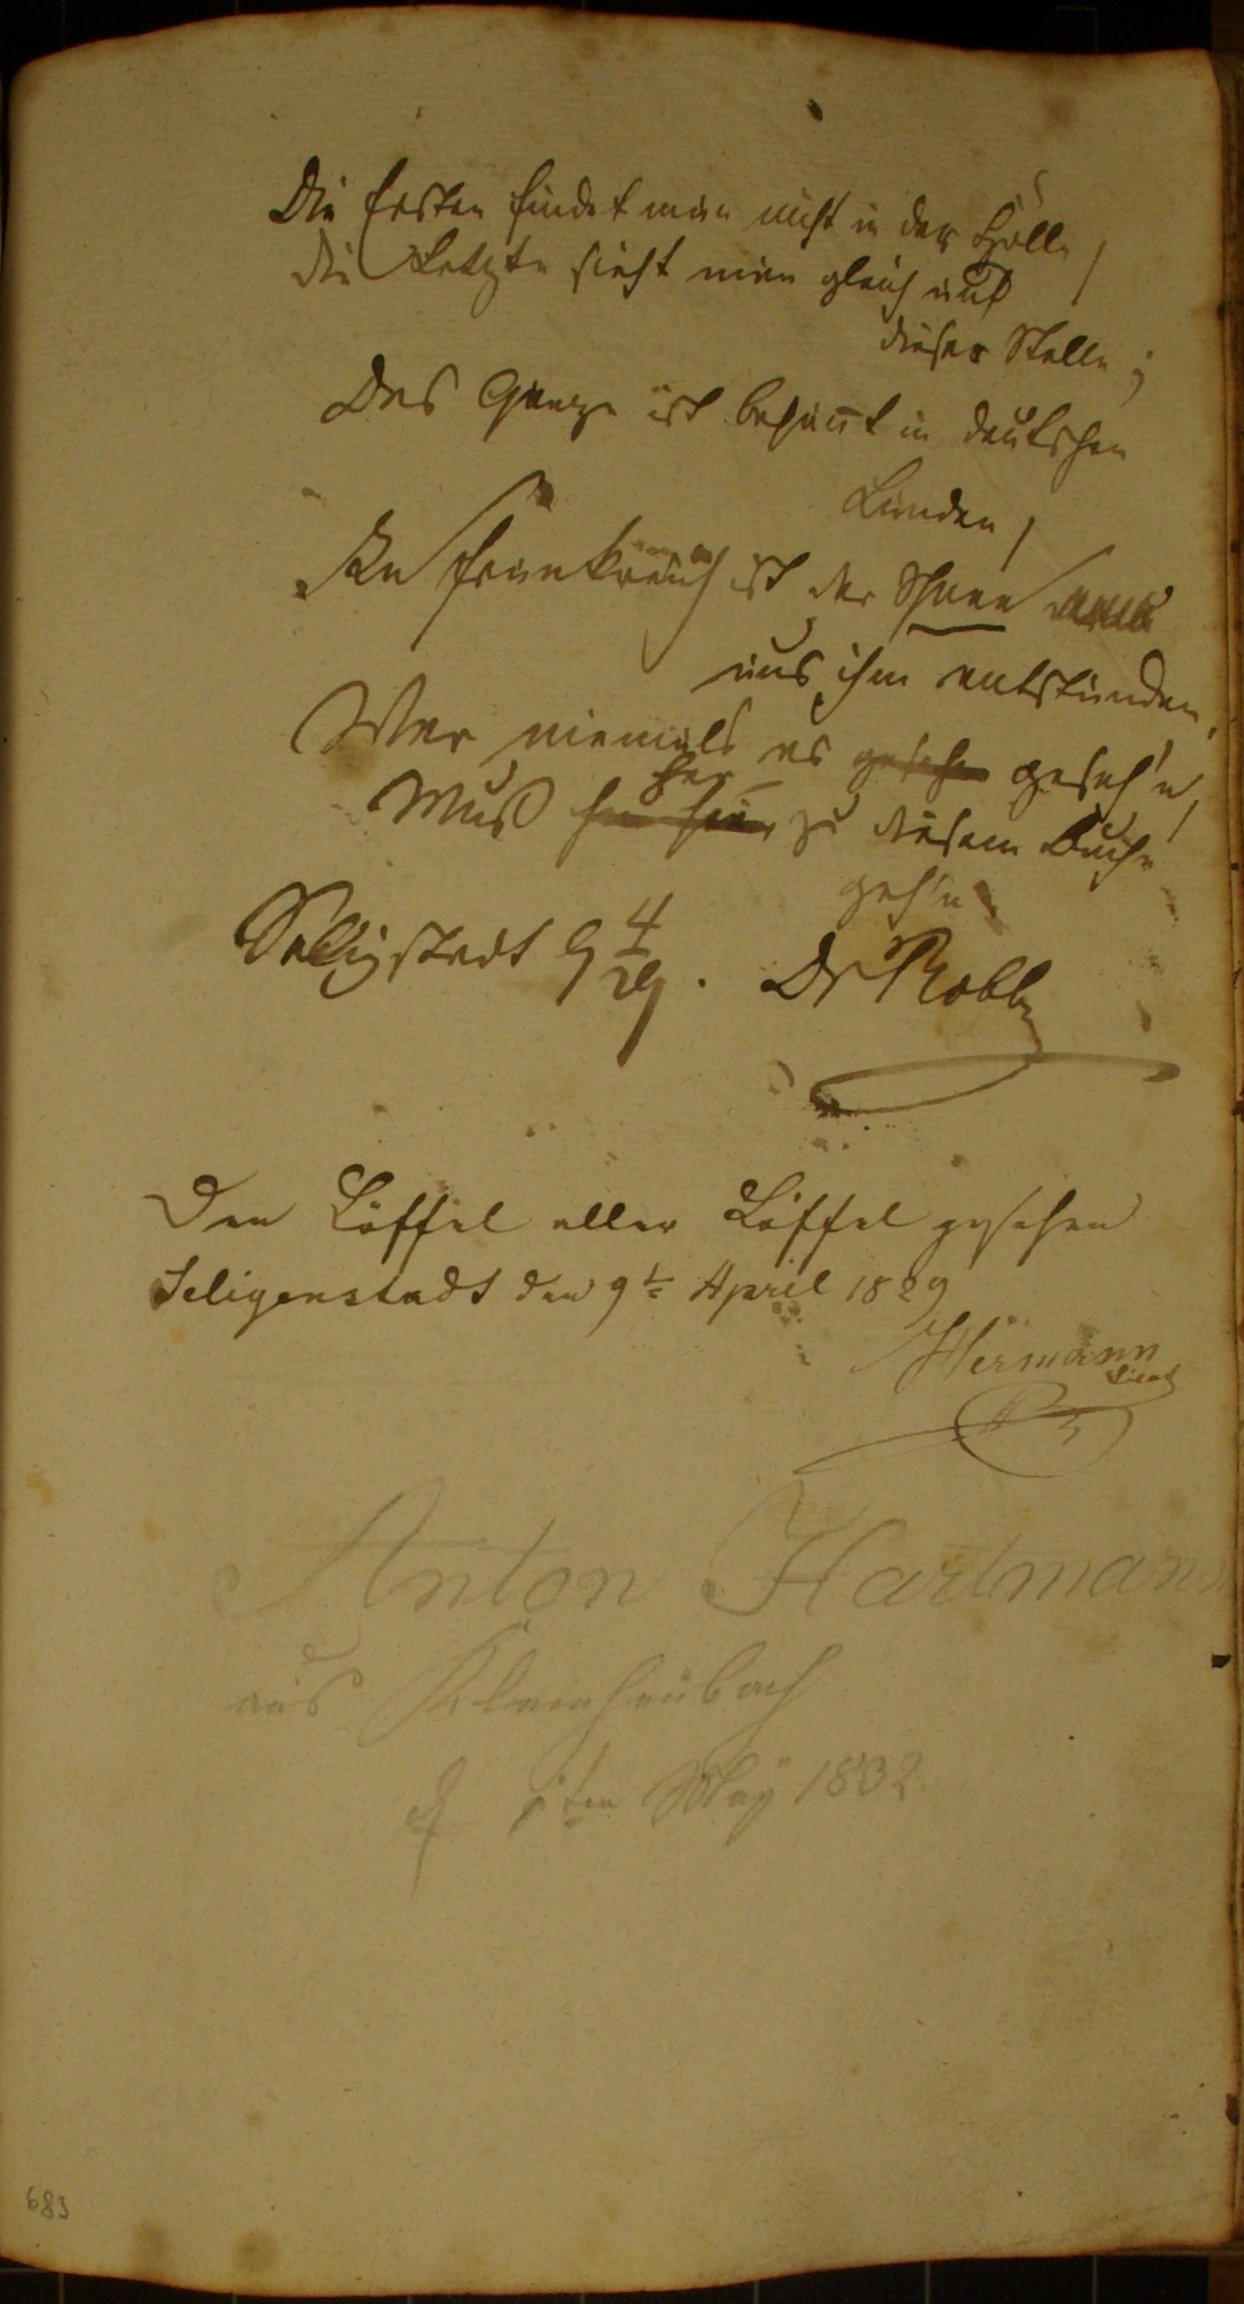 Die Ersten findet man nicht in der Hölle,
die Letzte sieht man gleich auf
dieser Stelle;
Das Ganze ist bekannt in deutschen
Landen,
In Frankreich ist der
aus ihm entstanden.
Wer niemals es gesehn geseh'n,
her
Muß zu diesem Buche
geh'n
Selligstadt 9 4/29. Dr
Den Löffel aller Löffel gesehen
Seligenstadt den 9t April 1829
Hermann
Anton Hartmann
aus Kleinheubach
d ten May 1832
683